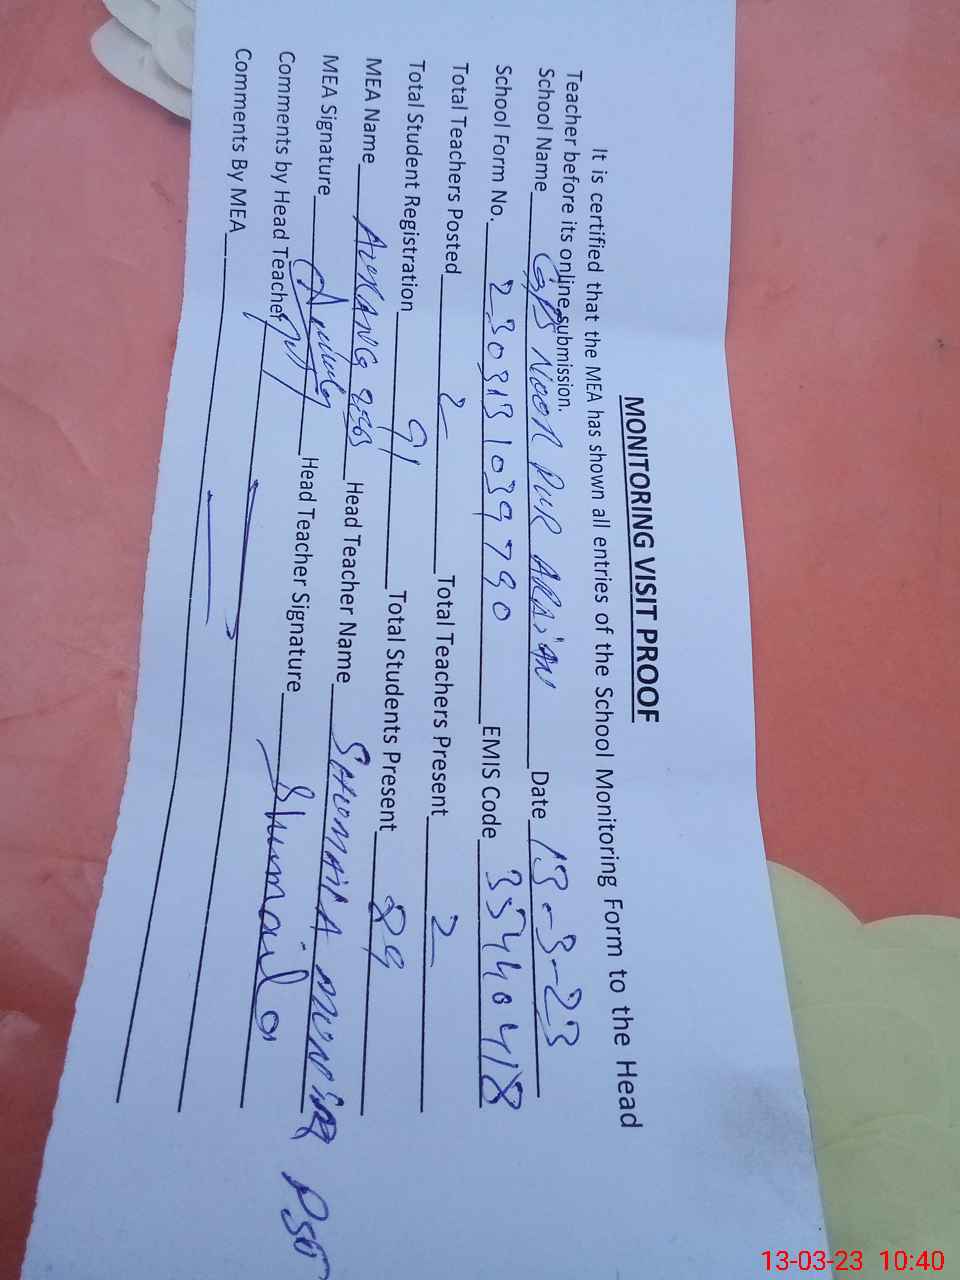 MONITORING VISIT PROOF
It is certified that the MEA has shown all entries of the School Monitoring Form to the Head
Teacher before its online submission.
School Name GPS NOOR PUR ARAiAN Date 13-3-23
School Form No. 2303131039790 EMIS Code 35440418
Total Teachers Posted 2 Total Teachers Present 2
Total Student Registration 91 Total Students Present 89
MEA Name AURANG Head Teacher Name SHUMAILA MUNiR PST
MEA Signature Head Teacher Signature Shumaila
Comments by Head Teacher
Comments By MEA
13-03-23 10:40